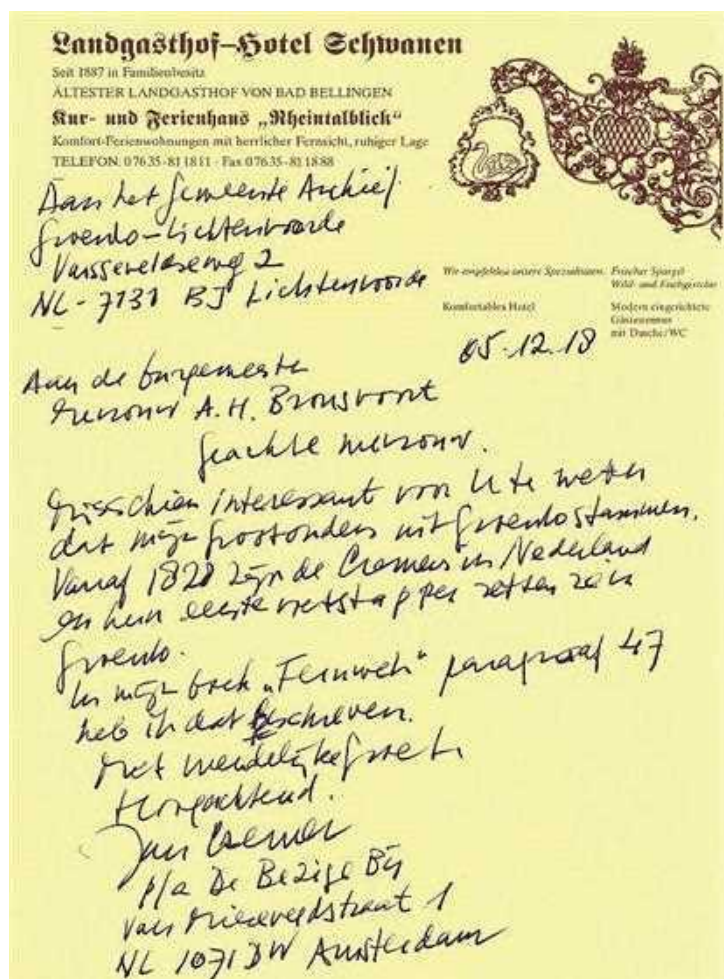 Landgasthof-Hotel Schwanen
Seit 1887 in Familienbesitz
ÄLTESTER LANDGASTHOF VON BAD BELLINGEN
Kur- und Ferienhaus „Rheintalblick“
Komfort-Ferienwohnungen mit herrlicher Fernsicht, ruhiger Lage
TELEFON: 07635-811811 · Fax 07635-811888
Aan het Gemeente Archief
Groenlo-Lichtenvoorde
Varsseveldseweg 2
NL-7131 BJ Lichtenvoorde
Wir empfehlen unsere Spezialitäten: Frischer Spargel
Wild- und Fischgerichte
Komfortables Hotel
Modern eingerichtete
Gästezimmer
mit Dusche/WC
05.12.18
Aan de burgemeester
Mevrouw A.H. Bronsvoort
Geachte mevrouw.
Misschien interessant voor U te weten
dat mijn grootouders uit Groenlo stammen.
Vanaf 1828 zijn de Cremers in Nederland
en hun eerste voetstappen zetten ze in
Groenlo.
In mijn boek „Fernweh“ paragraaf 47
heb ik dat beschreven.
Met vriendelijke groet.
Hoogachtend.
Jan Cremer
p/a De Bezige Bij
Van Miereveldstraat 1
NL 1071 DW Amsterdam